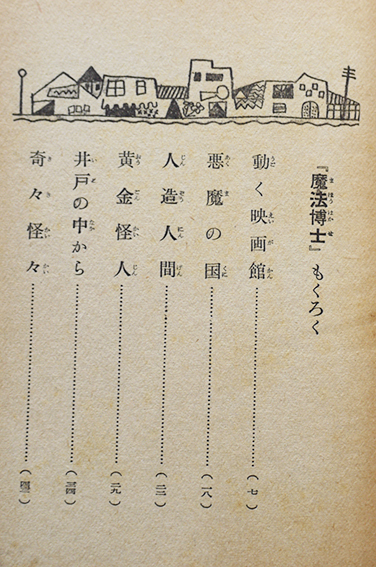 『魔法博士』もくろく
動く映画館……(七)
悪魔の国……(一八)
人造人間……(二二)
黄金怪人……(二九)
井戸の中から……(三四)
奇々怪々……